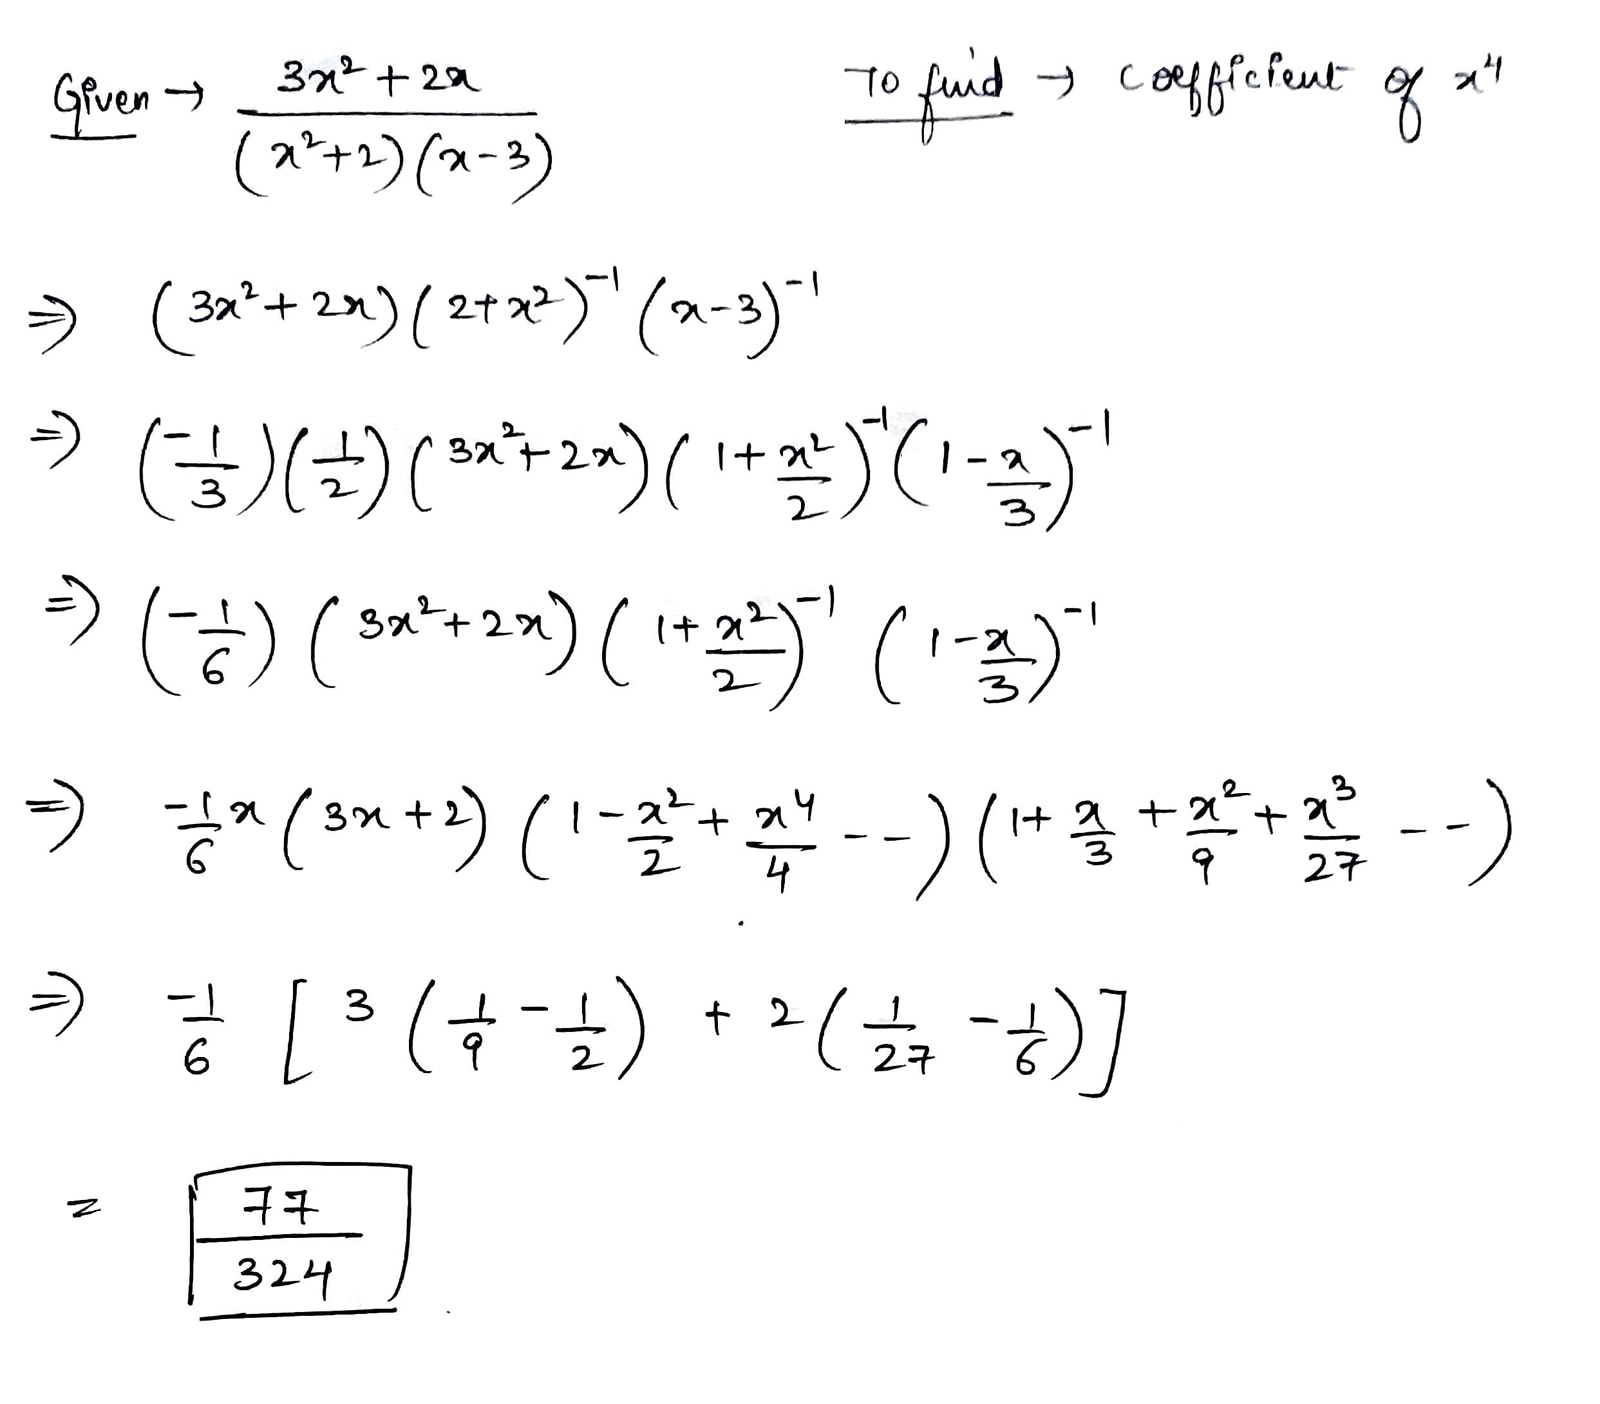 Given → (3x² + 2x) / ((x²+2)(x-3)) To find → coefficient of x⁴
⇒ (3x² + 2x)(2+x²)⁻¹(x-3)⁻¹
⇒ (-1/3)(1/2)(3x²+2x)(1+x²/2)⁻¹(1-x/3)⁻¹
⇒ (-1/6)(3x²+2x)(1+x²/2)⁻¹(1-x/3)⁻¹
⇒ -1/6 x(3x+2)(1-x²/2+x⁴/4--)(1+x/3+x²/9+x³/27--)
⇒ -1/6 [3(1/9-1/2) + 2(1/27-1/6)]
= 77/324